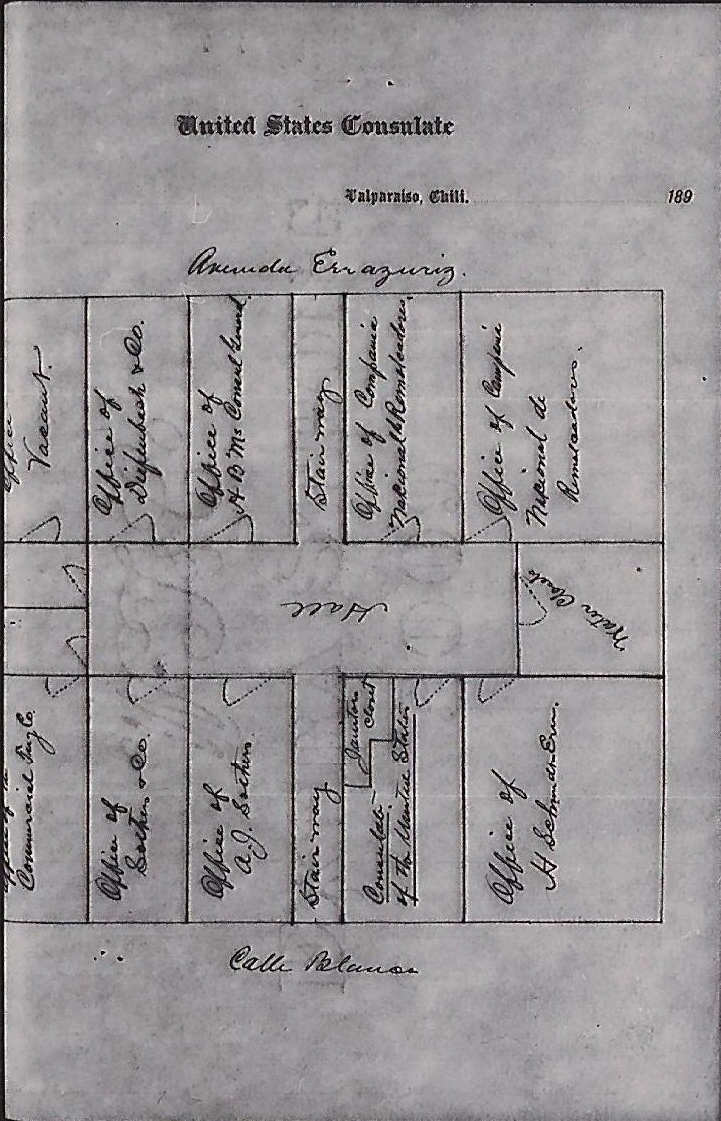 United States Consulate
Valparaiso, Chili.
189
Avenida Errazuriz.
Office
Vacant.
Office of
& Co.
Office of
A B McConnel
Stairway
Office of Compania
Nacional de Remolcadores.
Office of
Nacional de
Remolcadores.
Hall
Water Closets
Commercial Co.
Office of
& Co.
Office of
A. J.
Stairway
Janitors
Closet
Consulate
of the United States
Office of
H Schmidt
Calle Blanca